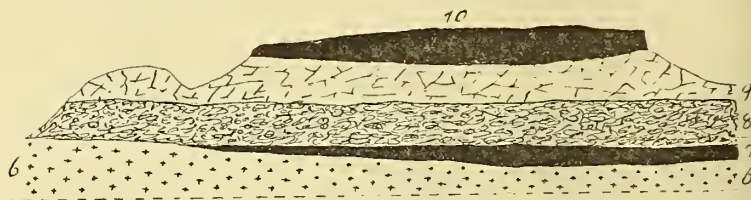 10
9
8
7
6
6